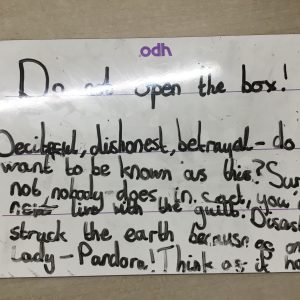 .odh
Do not open the box!
Deciteful, dishonest, betrayal - do
want to be known as this? Sur
not, nobody does in. fact, you
live with the guilt. Disast
struck the earth because os on
Lady - Pandora! Think as it